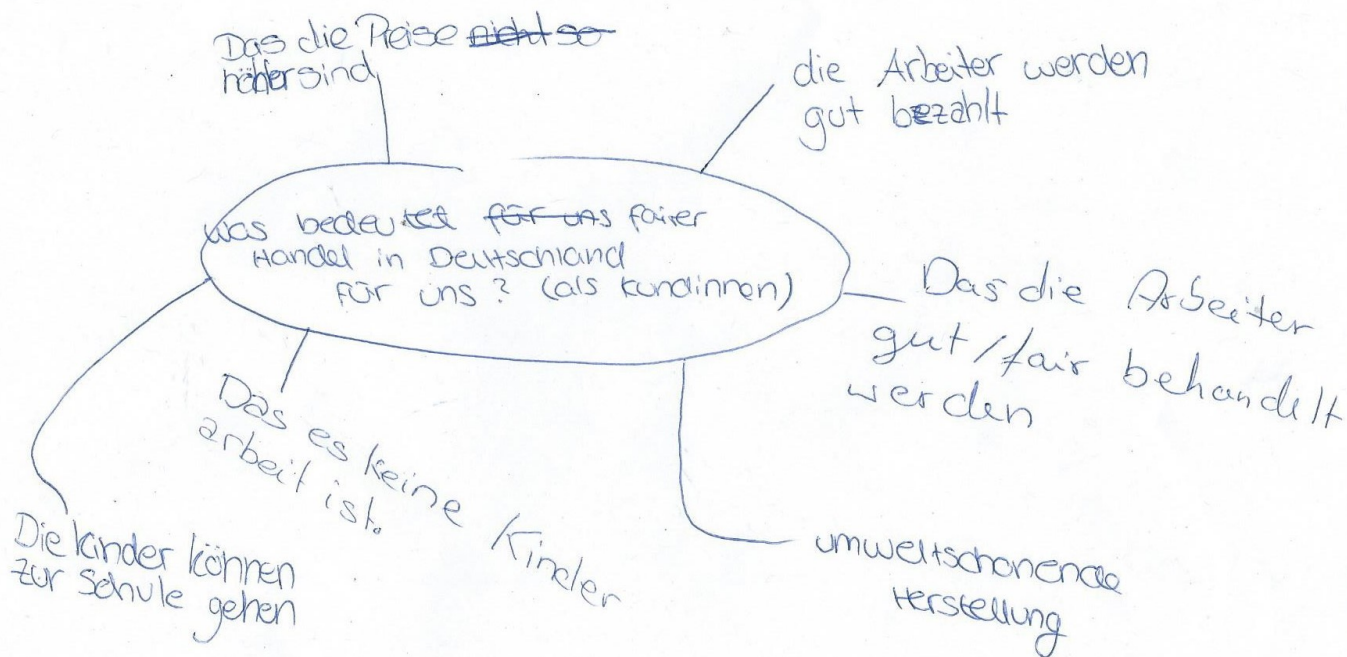 Das die Preise nicht so
höher sind
die Arbeiter werden
gut bezahlt
was bedeutet für uns fairer
Handel in Deutschland
für uns? (als kundinnen)
Das die Arbeiter
gut/fair behandelt
werden
Das es keine Kinder
arbeit ist.
Die kinder können
zur Schule gehen
umweltschonende
Herstellung